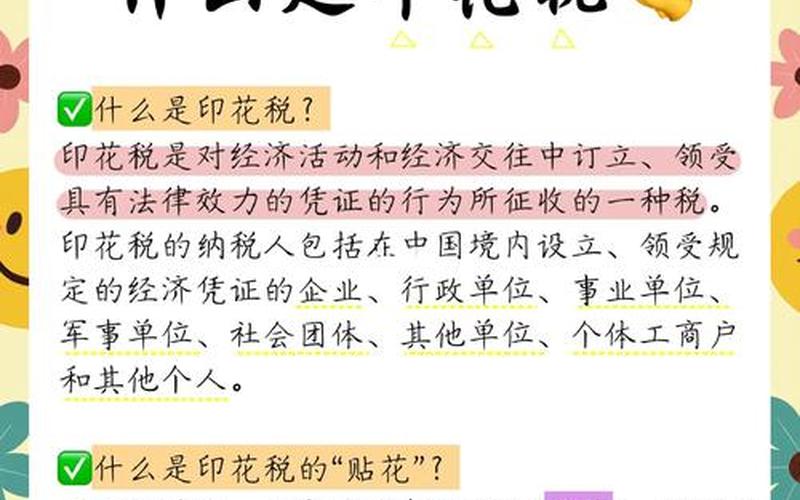 什么是印花税？
印花税是对经济活动和经济交往中订立、领受
具有法律效力的凭证的行为所征收的一种税。
印花税的纳税人包括在中国境内设立、领受规
定的经济凭证的企业、行政单位、事业单位、
军事单位、社会团体、其他单位、个体工商户
和其他个人。
什么是印花税的“贴花”？